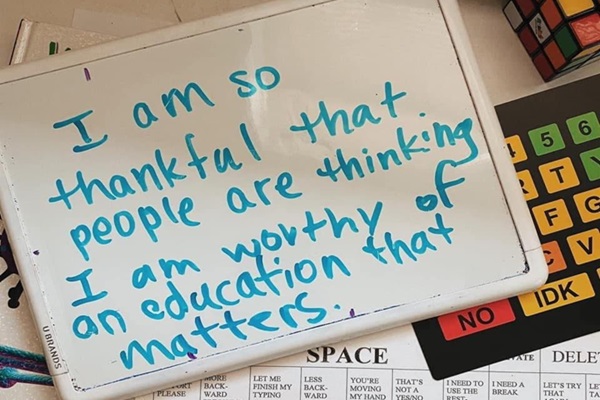 I am so
thankful that
people are thinking
I am worthy of
an education that
matters.
U BRANDS
4 5 6
R T Y
F G
C V
NO IDK
SPACE DELET
PLEASE
MORE BACK-WARD
LET ME FINISH MY TYPING
LESS BACK-WARD
YOU'RE MOVING MY HAND
THAT'S NOT A YES/NO
I NEED TO USE THE REST-
I NEED A BREAK
LET'S TRY THAT